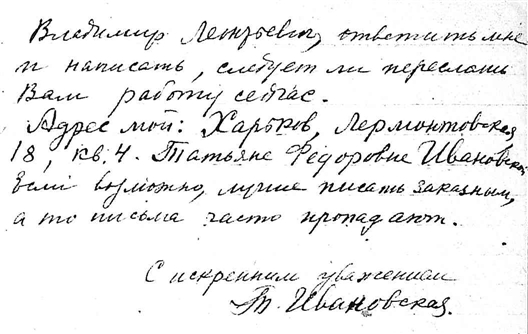 Владимир Леонтьевич, ответить мне
и написать, следует ли переслать
Вам работу сейчас.
Адрес мой: Харьков, Лермонтовская
18, кв. 4. Татьяне Федоровне Ивановской
Если возможно, лучше писать заказным,
а то письма часто пропадают.
С искренним уважением
Т. Ивановская.